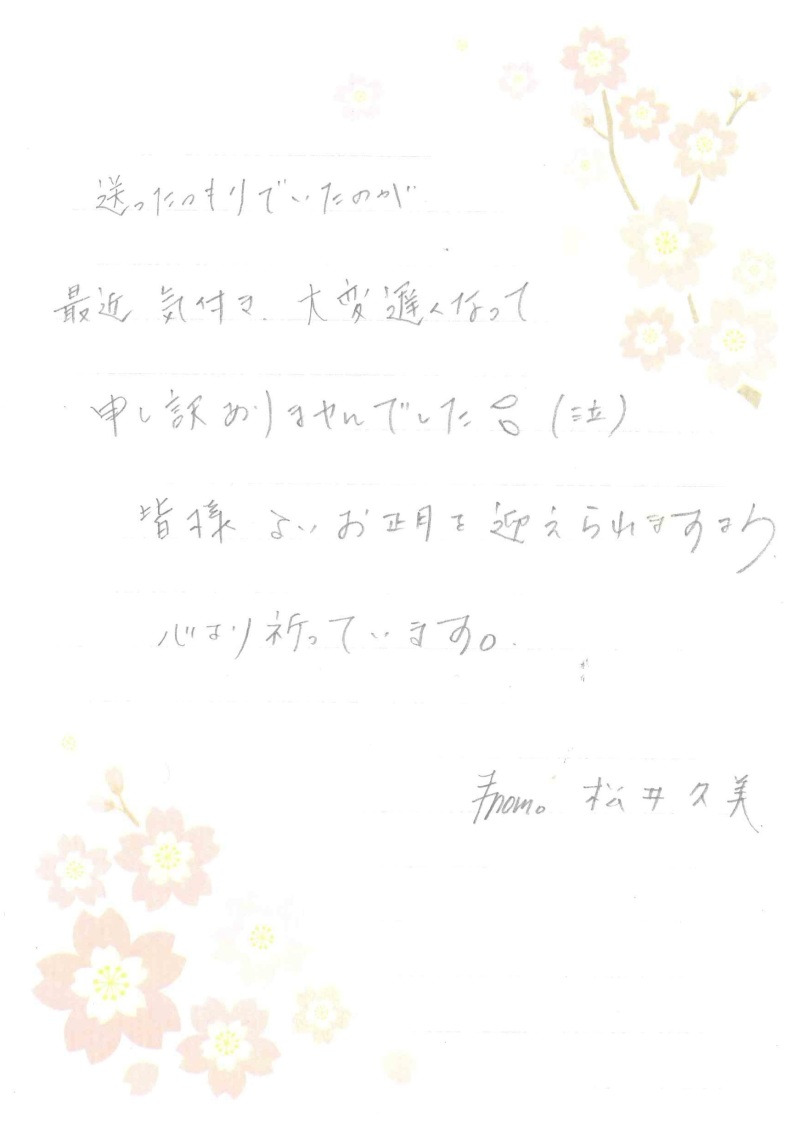 送ったつもりでいたのが
最近 気付き、大変遅くなって
申し訳ありませんでした (泣)
皆様 よいお正月を迎えられますよう
心より祈っています。
from. 松井久美